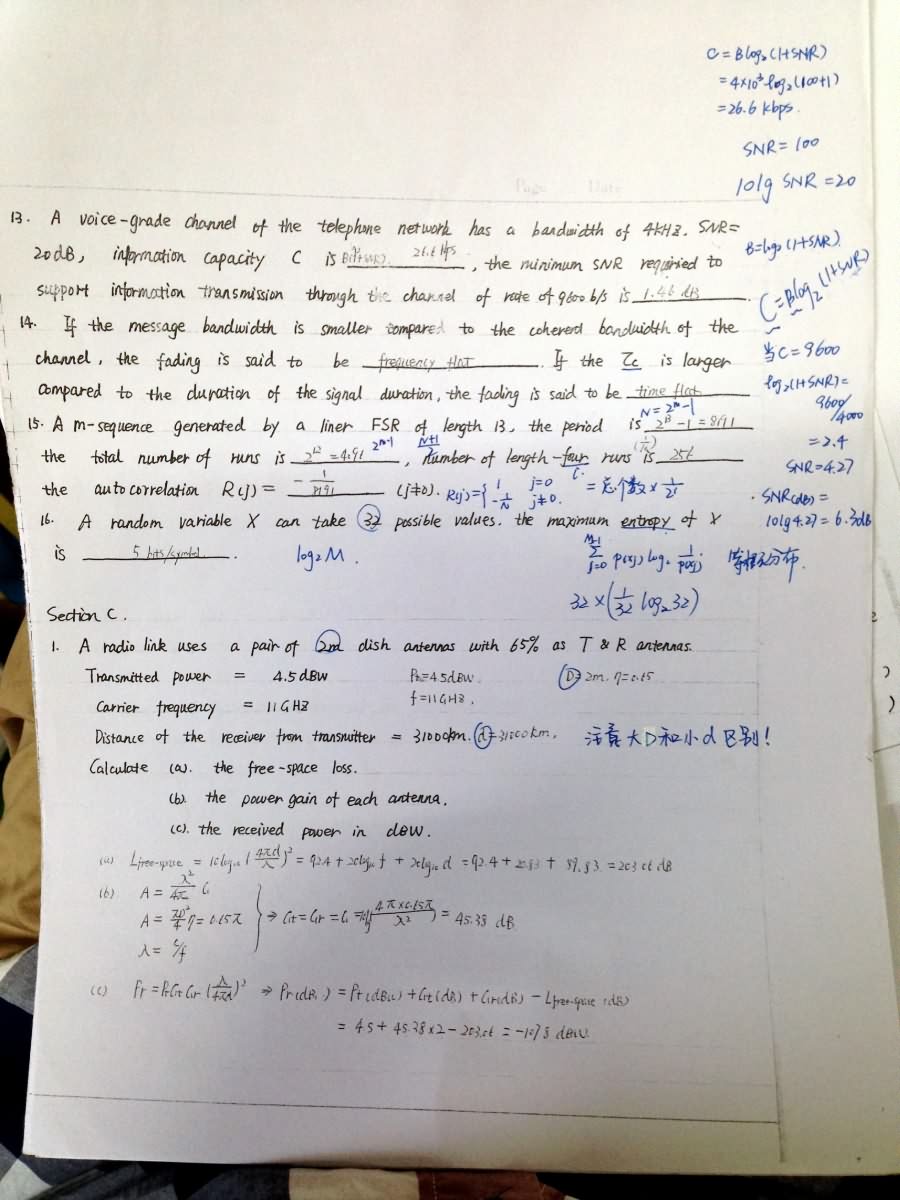 C = B log₂ (1+SNR)
= 4×10³ log₂ (100+1)
= 26.6 kbps.
SNR = 100
10lg SNR = 20
Page Date
13. A voice-grade channel of the telephone network has a bandwidth of 4kHz. SNR=
20dB, information capacity C is 26.6 kbps, the minimum SNR requried to
support information transmission through the channel of rate of 9600 b/s is 1.46 dB.
B=log₂ (1+SNR).
C=Blog₂ (1+SNR)
14. If the message bandwidth is smaller compared to the coherend bandwidth of the
channel, the fading is said to be frequency flat. If the Tc is larger
compared to the duration of the signal duration, the fading is said to be time flat
当C=9600
log₂(1+SNR)=
9600/4000
= 2.4
SNR=4.27
SNR(dB)=
10lg4.27=6.3dB
N = 2^m-1
15. A m-sequence generated by a liner FSR of length 13, the period is 2^13-1=8191
the total number of runs is 2^12=4091 2^m-1, number of length-four runs is 256
N+1/2
the autocorrelation R(j) = -1/8191 (j≠0). R(j)={1 j=0
-1/N j≠0.
= 总个数 × 1/2^i
16. A random variable X can take 32 possible values. the maximum entropy of X
is 5 bits/symbol. log₂M.
M-1 Σ j=0 p(xj) log₂ 1/p(xj)
32×(1/32 log₂32)
Section C.
1. A radio link uses a pair of 2m dish antennas with 65% as T & R antennas.
Transmitted power = 4.5dBW D=2m. η=0.65
Carrier frequency = 11GHz f=11GHz.
Distance of the receiver from transmitter = 31000km. d=31000km. 注意大D和小d区别!
Calculate (a). the free-space loss.
(b). the power gain of each antenna.
(c). the received power in dBW.
(a) Lfree-space = 10log₁₀(4πd/λ)² = 92.4+20log₁₀ f + 20log₁₀ d = 92.4+20.83 + 89.83 = 203.06 dB
(b) A = λ²/4π G
A = πD²/4 η = 0.65π
λ = c/f
⇒ Gt=Gr=G =10lg(4π×0.65π/λ²) = 45.38 dB
(c) Pr = PtGtGr(λ/4πd)² ⇒ Pr(dBw) = Pt(dBw)+Gt(dB)+Gr(dB) - Lfree-space (dB)
= 4.5+45.38×2-203.06 = -107.8 dBW.